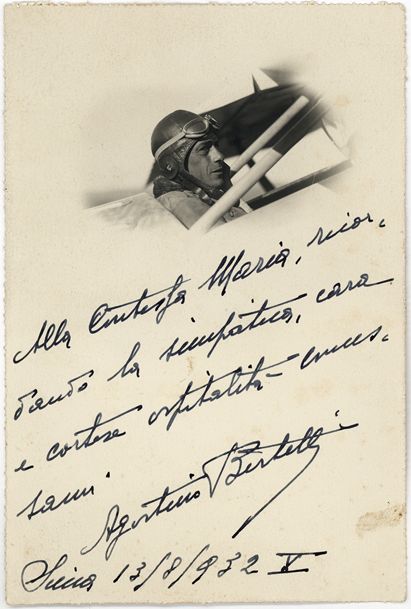 Alla Contessa Maria, ricor,
dando la simpatica, cara
e cortese ospitalità conces,
sami.
Agostino Bertelli
Siena 13/8/932 X